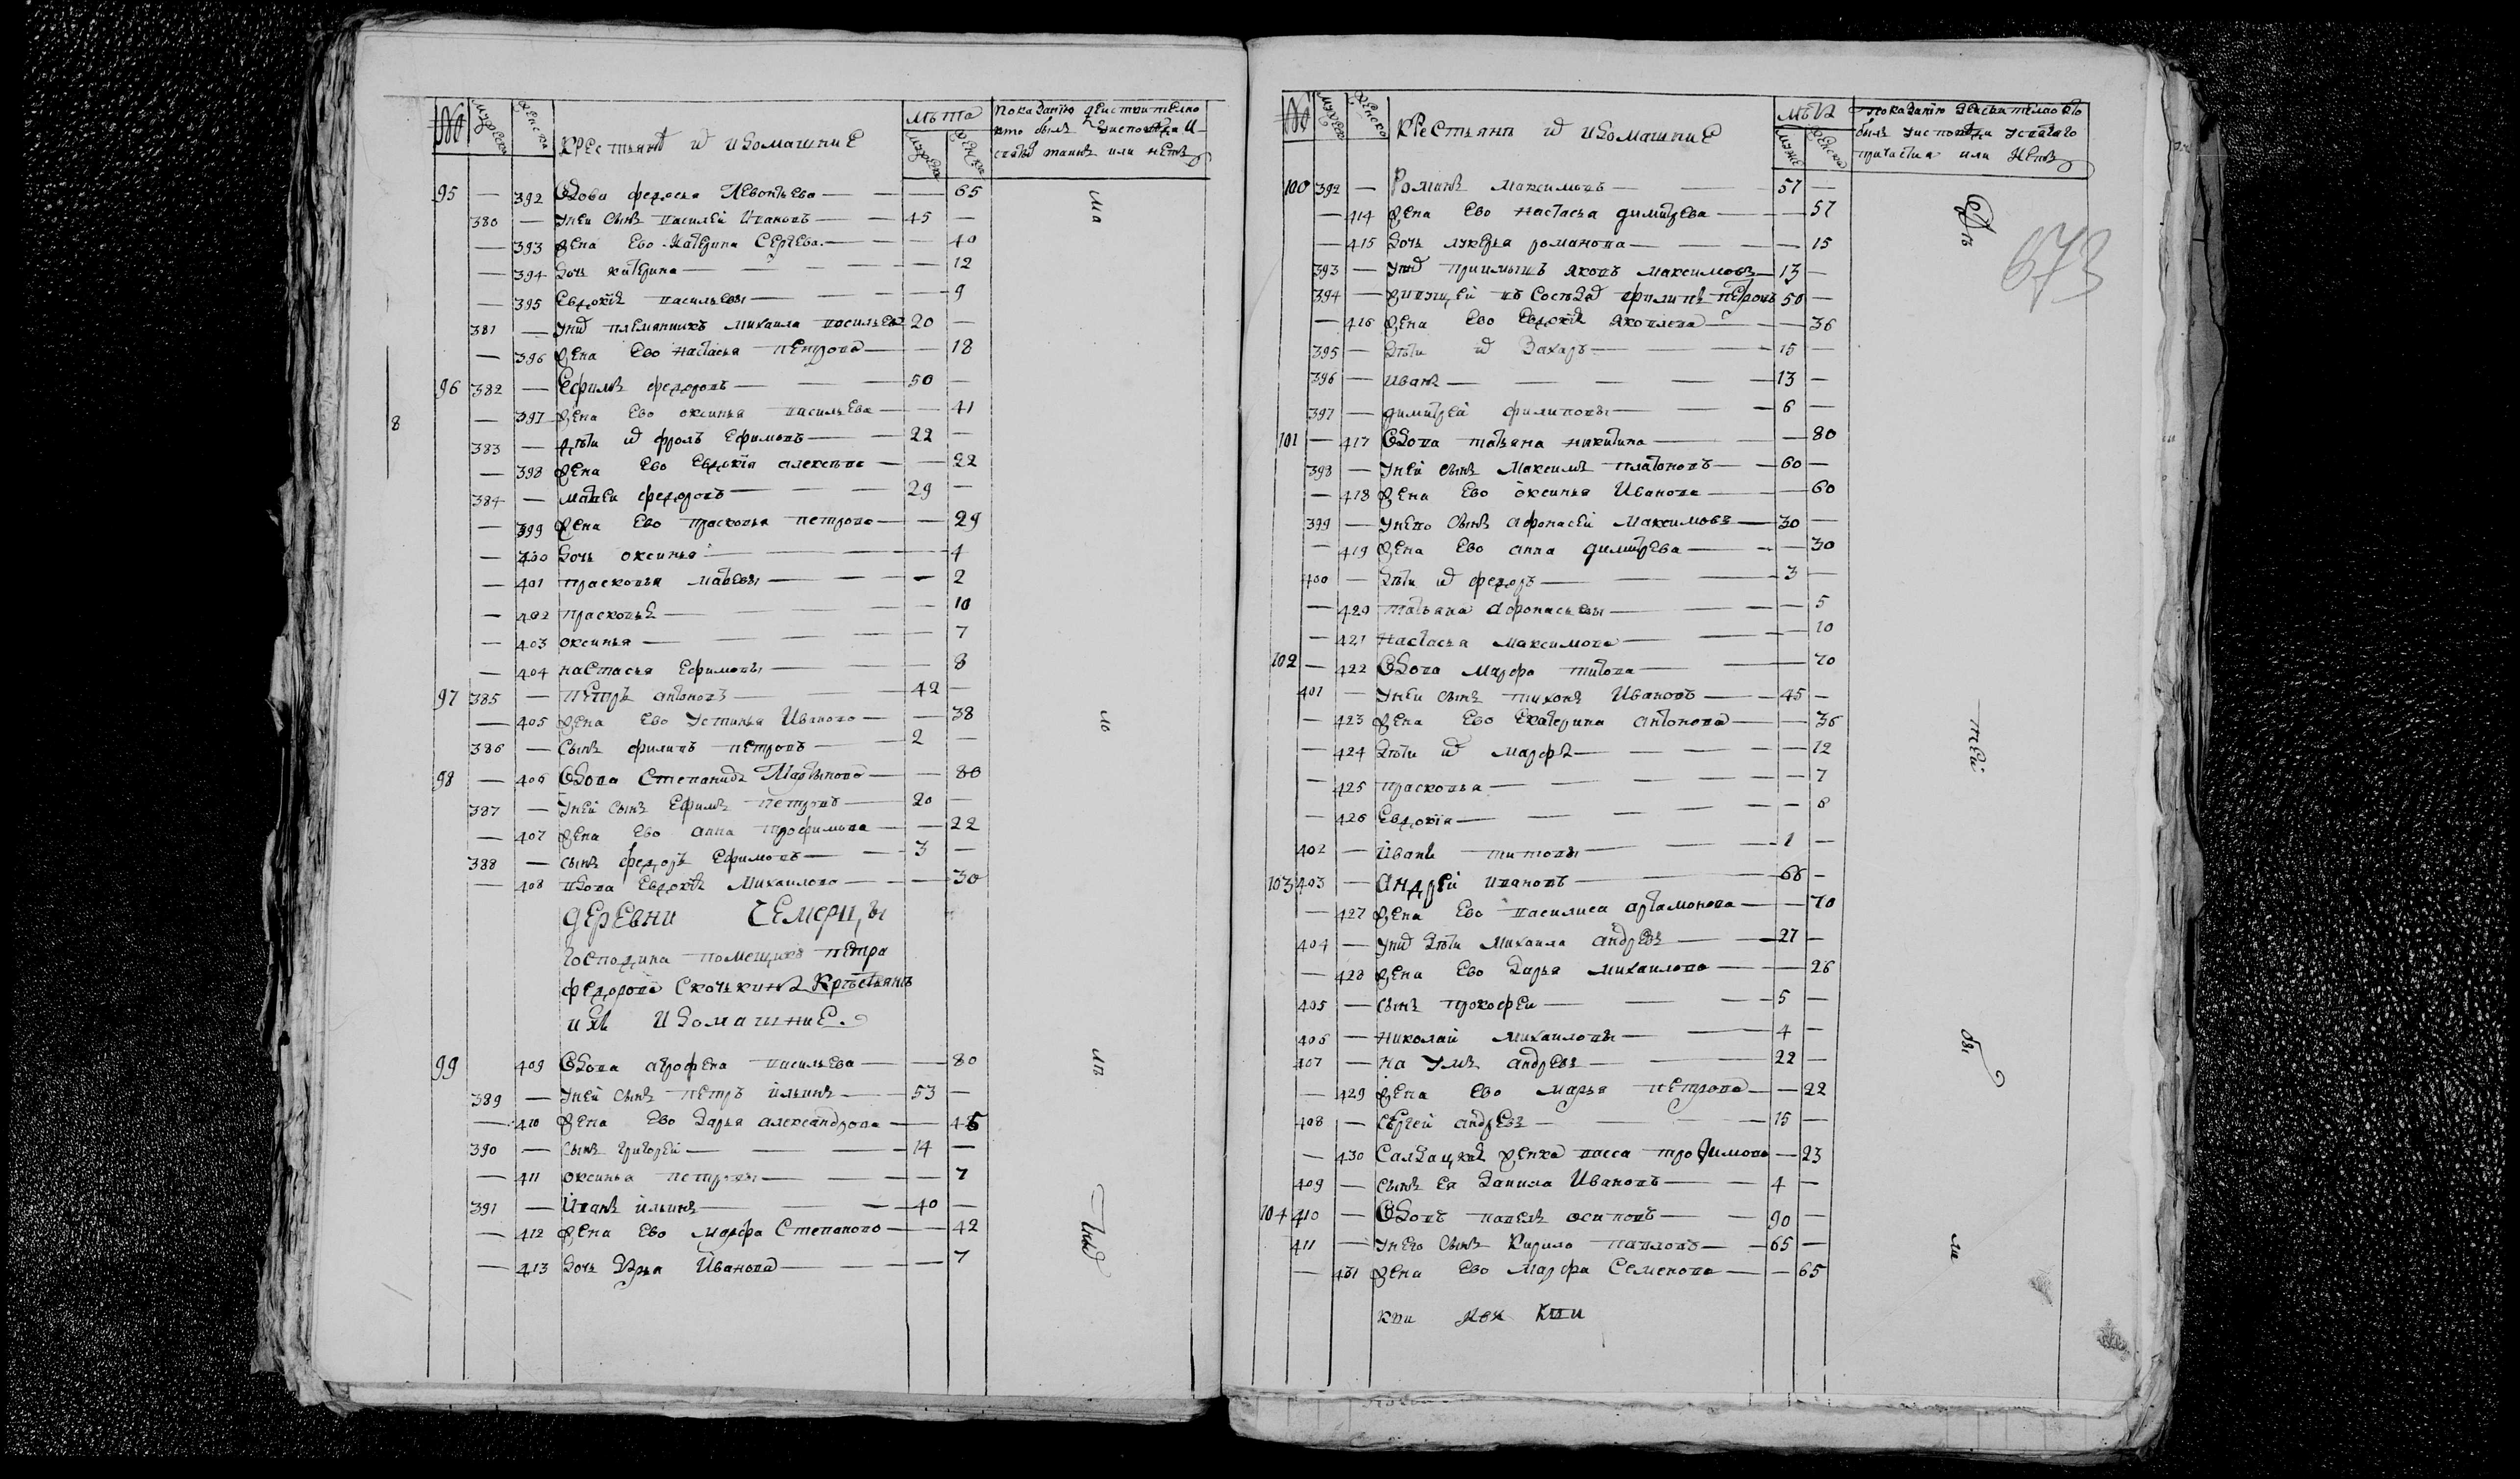 № мужеска женска Крестьянѣ и идомашние
лѣта мужеска женска
показанию действително
кто былъ уисповеди и
святѣ таинѣ или нетъ
95 — 392 Вдова федосья Левонтьева — — 65
380 — унеи сынъ василей Ивановъ — 45 —
— 393 жена ево катерина Сергева — — 40
— 394 дочь катерина — — 12
— 395 Евдокія васильевы — — 9
381 — унив племянникъ михаила васильев 20 —
— 396 жена ево настасья петрова — — 18
96 382 — Ефимъ федоровъ — 50 —
— 397 жена ево оксинья васильева — — 41
383 — дѣти фролъ Ефимовъ — 22 —
— 398 жена ево евдокія алексѣва — — 22
384 — матвеи федоровъ — 29 —
— 399 жена ево прасковья петрова — — 29
— 400 дочь оксинья — — 4
— 401 прасковья матвевы — — 2
— 402 прасковья — — 10
— 403 оксинья — — 7
— 404 настасья Ефимовы — — 8
97 385 — петръ антоновъ — 42 —
— 405 жена ево устинья Иванова — — 38
386 — сынъ филипъ петровъ — 2 —
98 — 406 Вдова Степанида Мартынова — — 80
387 — уней сынъ Ефимъ петровъ — 20 —
— 407 жена ево анна трофимова — — 22
388 — сынъ федоръ Ефимовъ — 3 —
— 408 вдова Евдокія Михаилова — — 30
деревни Чемерцы
господина помещика петра
федорова Скочкина Крѣстьянѣ
ихъ идомашние
99 409 Вдова агрофена васильева — — 80
389 — уней сынъ петръ ильинъ — 53 —
— 410 жена ево дарья александрова — — 45
390 — сынъ григорей — 14 —
— 411 оксинья петровы — — 7
391 — Иванъ ильинъ — 40 —
— 412 жена ево марфа Степанова — — 42
— 413 дочь дарья Иванова — — 7
8
№ мужеска женско Крестьяни идомашние
лѣта муже женска
показанию
былъ уисповеди усвятаго
причастиа или нетъ
673
100 392 — Романъ максимовъ — 57 —
— 414 жена ево настасья димитрева — — 57
— 415 дочь лукерья романова — — 15
393 — приимышъ яковъ максимовъ — 13 —
394 — живущей филипъ петровъ 50 —
— 416 жена ево евдокія яковлева — — 36
395 — дѣти Захаръ — 15 —
396 — иванъ — 13 —
397 — димитрей филиповы — 6 —
101 — 417 Вдова татьяна никитина — — 80
398 — уней сынъ максимъ платоновъ — 60 —
— 418 жена ево оксинья Иванова — — 60
399 — унево сынъ афонасей максимовъ — 30 —
— 419 жена ево анна димитрева — — 30
400 — дѣти федоръ — 3 —
— 420 татьяна афонасьевы — — 5
— 421 настасья максимова — — 10
102 — 422 Вдова марфа титова — — 70
401 — унеи сынъ тихонъ Ивановъ — 45 —
— 423 жена ево екатерина антонова — — 36
— 424 дѣти марфа — — 12
— 425 прасковья — — 7
— 426 Евдокія — — 8
402 — иванъ титовы — 1 —
103 403 — Андрей ивановъ — 66 —
— 427 жена ево василиса артамонова — — 70
404 — дѣти михаила андревъ — 27 —
— 428 жена ево дарья михаилова — — 26
405 — сынъ прокофеи — 5 —
406 — николай михаиловы — 4 —
407 — наумъ андревъ — 22 —
— 429 жена ево марья петрова — — 22
408 — сергей андревъ — 15 —
— 430 Салдацкая женка васса трофимова — 23
409 — сынъ ея данила Ивановъ — 4 —
104 410 — Вдовъ павелъ осиповъ — 90 —
411 — унего сынъ Кирило павловъ — 65 —
— 431 жена ево Марфа Семенова — — 65